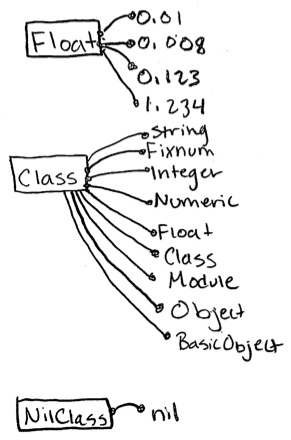 Float
0.01
0.008
0.123
1.234
Class
String
Fixnum
Integer
Numeric
Float
Class
Module
Object
BasicObject
NilClass
nil